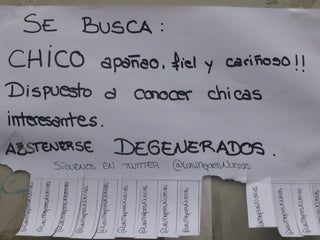 SE BUSCA:
CHICO apañao, fiel y cariñoso!!
Dispuesto a conocer chicas
interesantes.
ABSTENERSE DEGENERADOS.
SÍGUENOS EN TWITTER: